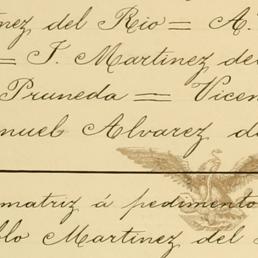 nez del Rio = A.
= J. Martinez del
Pruneda = Vicen
nuel Alvarez d
matriz á pedimento
blo Martinez del